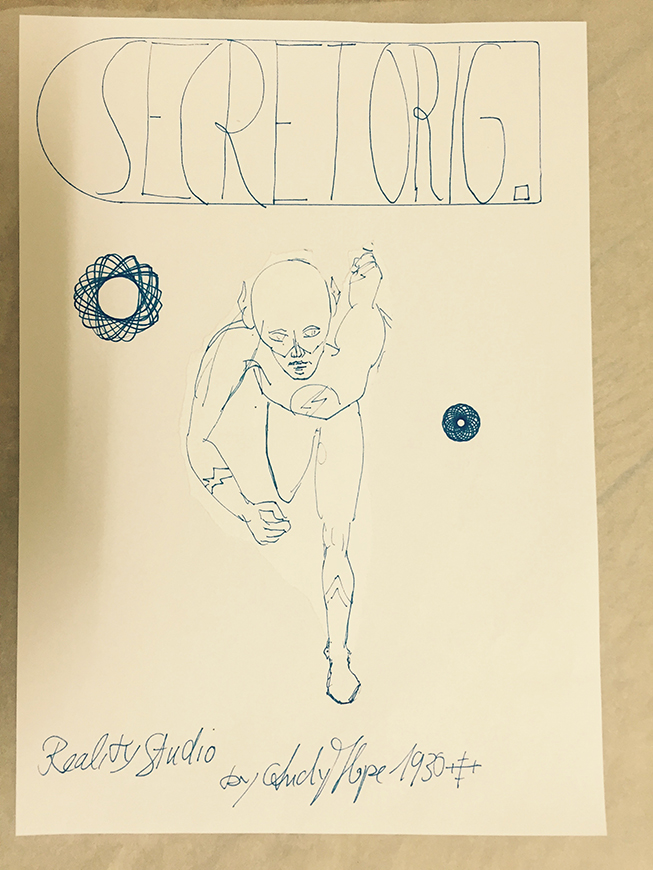 SECRET ORIG.
Reality Studio
by Andy Hope 1930